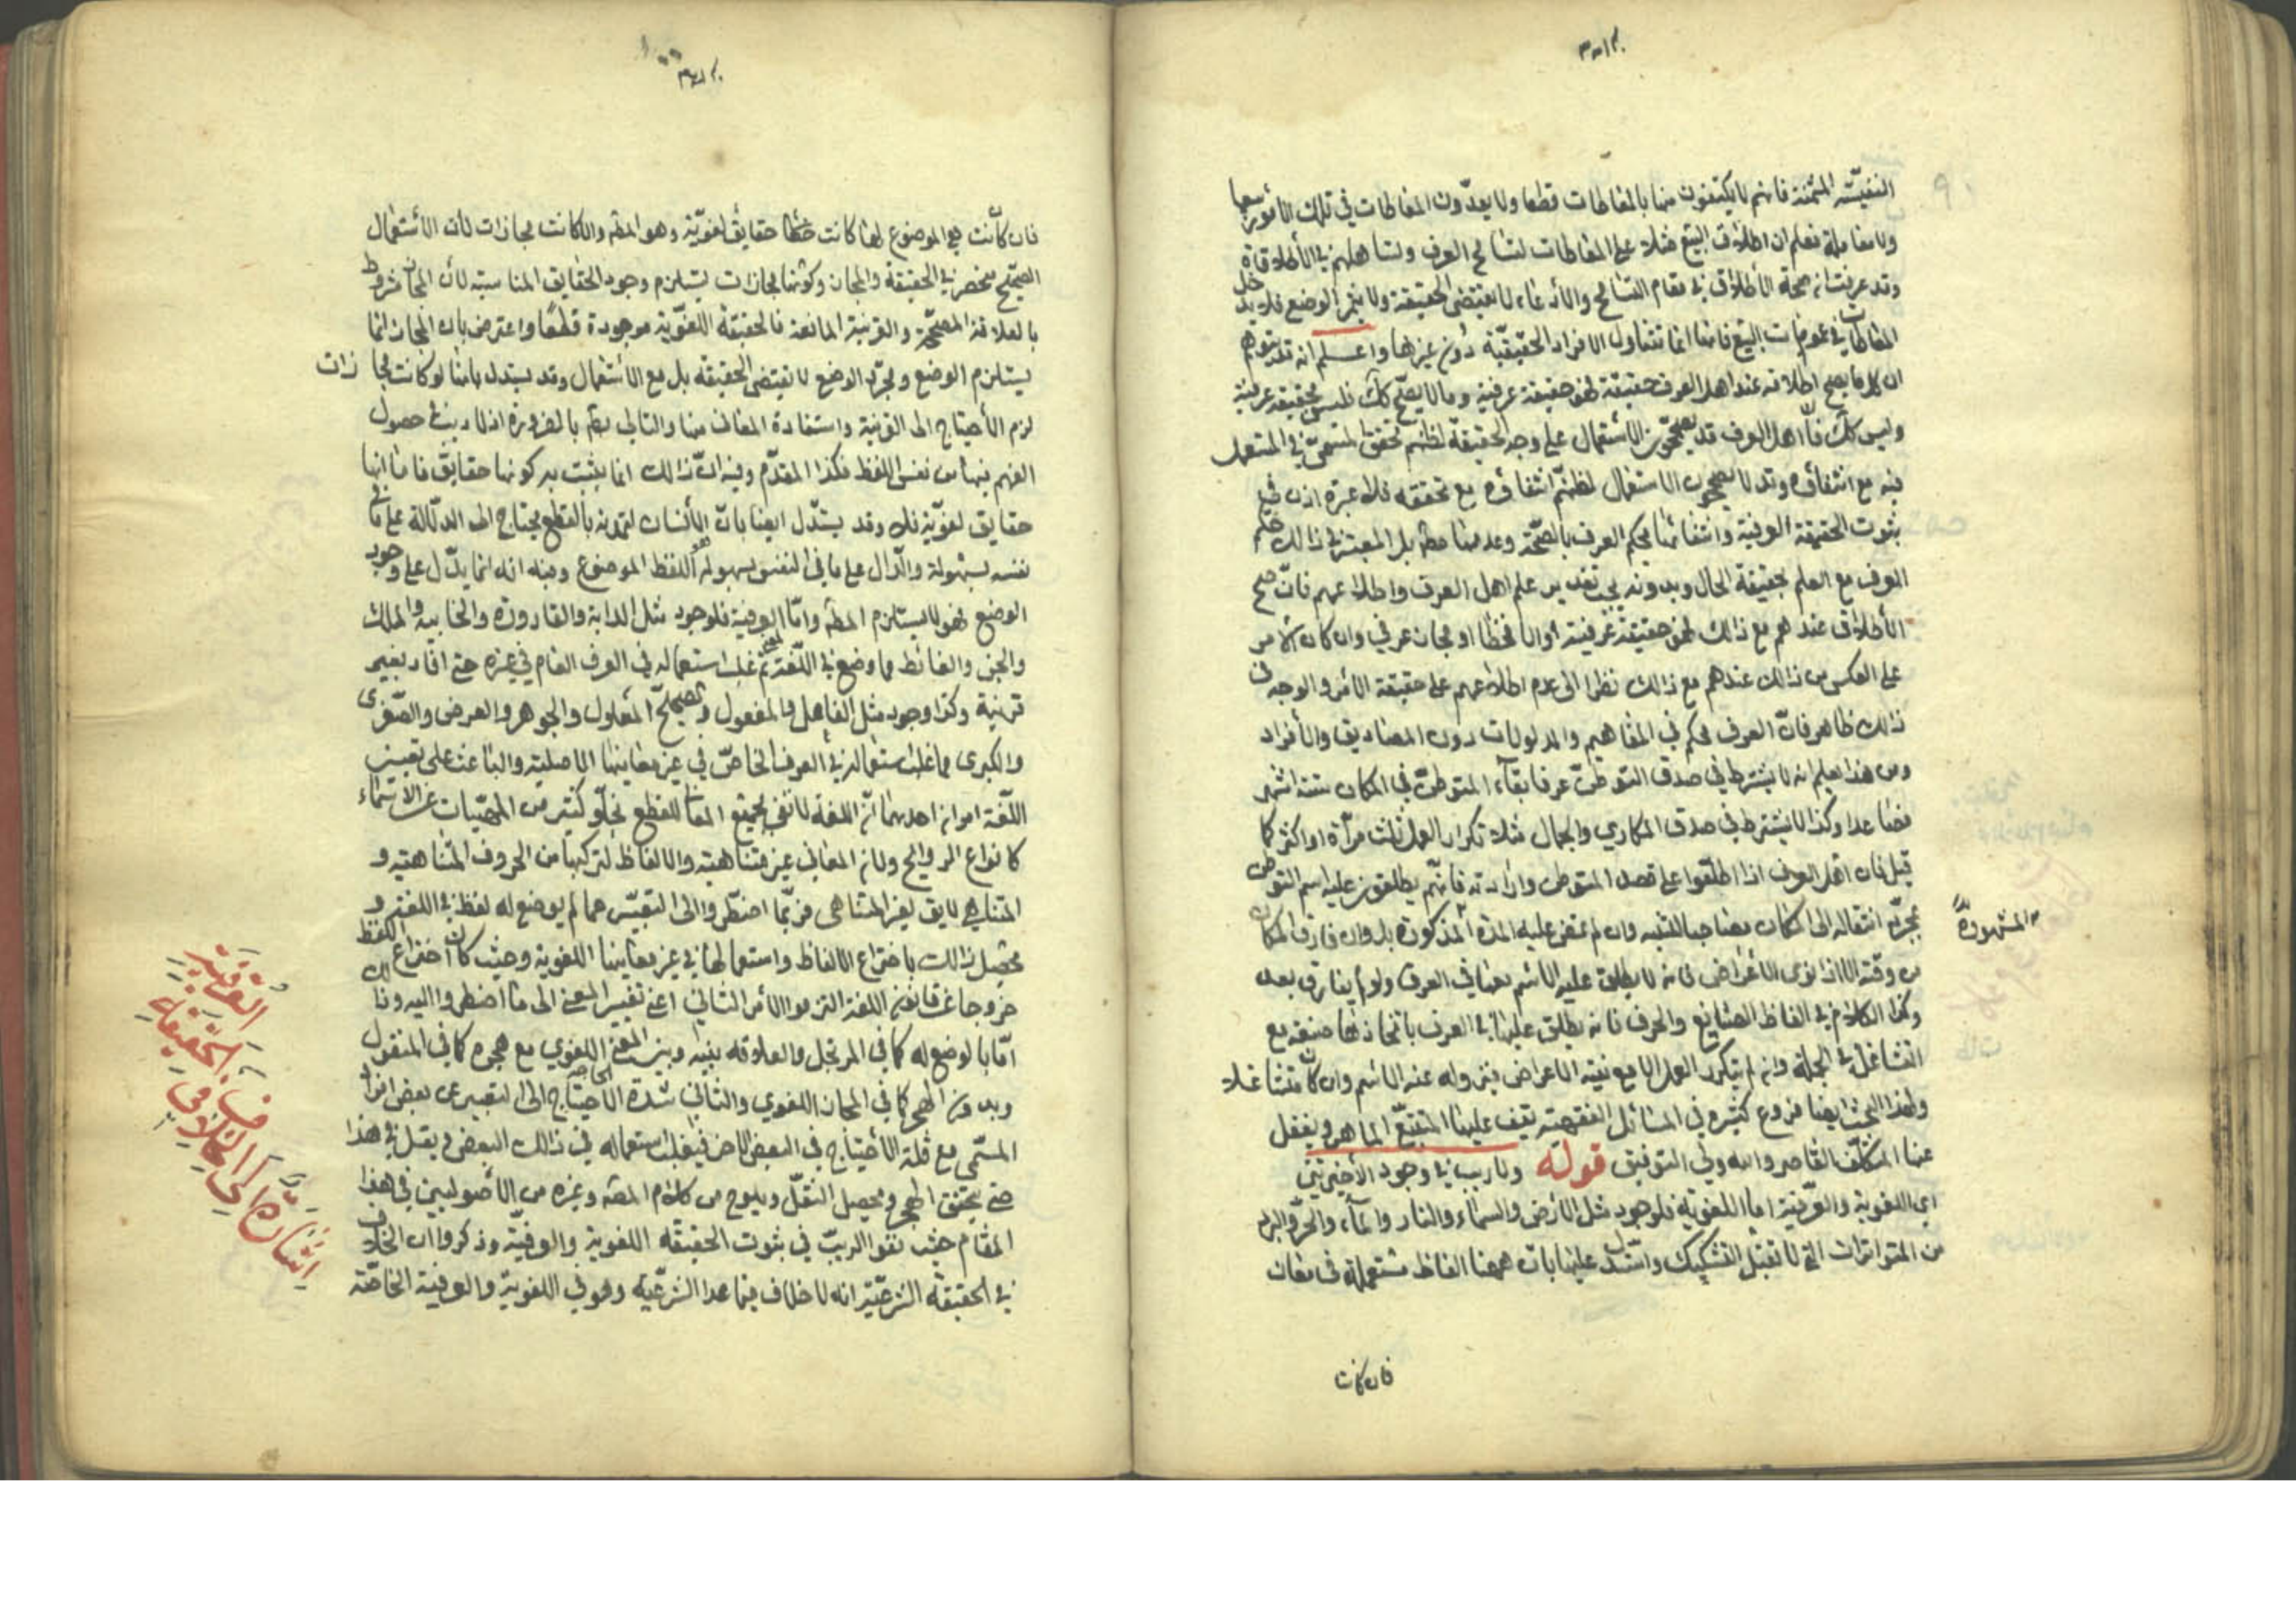 النفیسة المثمنة فانهم لا یکتفون منها بالمغالطات قطعا ولا یعدّون المغالطات فی تلک الامور بیعا
ولا معاملة فعلم ان اطلاق البیع مثلا علی المغالطات لتسامح العرف وتساهلهم فی الاطلاقات
وقد عرفت ان صحة الاطلاق فی مقام التسامح والادعاء لا یقتضی الحقیقة ولا یثمر الوضع فلا یدخل
المغاطات فی عمومات البیع فانها انما تتناول الافراد الحقیقیّة دون غیرها واعلم انه قد یتوهم
ان کل ما یصح اطلاقه عند اهل العرف حقیقة فهو حقیقة عرفیة وما لا یصح کک فلیس بحقیقة عرفیة
ولیس کک فانّ اهل العرف قد یصحّحون الاستعمال علی وجه الحقیقة لظنهم تحقق المسمّی فی المستعمل
فیه مع انتفائه وقد لا یصححون الاستعمال لظنهم انتفائه مع تحققه فلا عبرة اذن فی
ثبوت الحقیقة العرفیة وانتفائها بحکم العرف بالصحّة وعدمها مطلقا بل المعتبر فی ذالک حکم
العرف مع العلم بحقیقة الحال وبدونه یجب تقدیر علم اهل العرف واطلاعهم فانّ صح
الاطلاق عندهم مع ذالک فهو حقیقة عرفیة والا فخطا او مجاز عرفی وان کان الامر
علی العکس من ذالک عندهم مع ذالک نظرا الی عدم اطلاعهم علی حقیقة الامر والوجه فی
ذالک ظاهر فانّ العرف محکم فی المفاهیم والمدلولات دون المصادیق والافراد
ومن هذا یعلم انه لا یشترط فی صدق التوطن عرفا بقاء المتوطن فی المکان ستة اشهر
فصاعدا وکذا لا یشترط فی صدق المکاری والجمال مثلا تکرار العمل ثلث مرّات او اکثر کما
قیل فان اهل العرف اذا اطلعوا علی قصد المتوطن وارادته فانّهم یطلقون علیه اسم التوطن
بمجرّد انتقاله الی المکان مصاحبا للنیة وان لم تمض علیه المدّة المذکورة بل وان فارق المکان
من وقته الا اذا نوی الاعراض فانه لا یطلق علیه الاسم بعدها فی العرف ولو لم یفارق بعد
وکذا الکلام فی الفاظ الصنایع والحرف فانه یطلق علیها فی العرف باتخاذها صنعة مع
التشاغل فی الجملة وان لم یتکرر العمل الا مع نیة الاعراض فیزول عنه الاسم وان کان متشاغلا
ولهذا البحث ایضا فروع کثیرة فی المسائل الفقهیة یقف علیها المتتبّع الماهر ویغفل
عنها المتکلّف القاصر والله ولی التوفیق قوله ولا ریب فی وجود الاخیرتین
ای اللغویة والعرفیة امّا اللغویة فلوجود مثل الارض والسماء والنار والماء والحرّ والبرد
من المتواترات التی لا تقبل التشکیک واستدل علیها بان ههنا الفاظ مستعملة فی معان
المشهورة
فان کانت
فان کانت هی الموضوع لها کانت حقایق لغویّة وهو المط والا کانت مجازات لان الاستعمال
الصحیح منحصر فی الحقیقة والمجاز وکونها مجازات یستلزم وجود الحقایق المناسبة لان المجاز مشروط
بالعلاقة المصحّحة والقرینة المانعة فالحقیقة اللغویّة موجودة قطعًا واعترض بان المجاز انما
یستلزم الوضع ومجرّد الوضع لا یقتضی الحقیقة بل مع الاستعمال وقد یستدل بانها لو کانت مجازات
لزم الاحتیاج الی القرینة واستفادة المعانی منها والتالی بط بالضرورة اذ لا ریب فی حصول
الفهم فیها من نفس اللفظ فکذا المقدّم وفیه انّ ذالک انما یثبت به کونها حقایق فامّا انها
حقایق لغویّة فلا وقد یستدّل ایضا بانّ الانسان لتمدنه بالطبع یحتاج الی الدلالة علی ما فی
نفسه بسهولة والدّال علی ما فی النفس بسهولة هو اللفظ الموضوع وفیه انه انما یدّل علی وجود
الوضع فهو لا یستلزم المط وامّا العرفیة فلوجود مثل الدابة والقارورة والخابیة والملک
والجن والغائط مما وضع فی اللغة لمعنی ثم غلب استعماله فی العرف العام فی غیره حتی افاد بغیر
قرینة وکذا وجود مثل الفاعل والمفعول والصحیح المعلول والجوهر والعرض والصّغری
والکبری مما غلب استعماله فی العرف الخاصّ فی غیر معاینها الاصلیة والباعث علی تغییر
اللّغة امران احدهما انّ اللغة لا تفی بجمیع المعانی للقطع بخلّو کثیر من المهیّات عن الاسماء
کانواع الروایح ولان المعانی غیر متناهیة والالفاظ لترکبها من الحروف المتناهیة و
المتناهی لا یفی بغیر المتناهی فربّما اضطّروا الی التعبیر عما لم یوضع له لفظ فی اللغة و
تحصیل ذالک باختراع الالفاظ واستعمالها فی غیر معاینها اللغویة وحیث کان اختراع اللفظ
خروجا عن قانون اللغة التزموا الامر الثانی اعنی تغییر المعنی الی ما اضطروا الیه وذالک
امّا بالوضع له کما فی المرتجل والعلاقة بینه وبین المعنی اللغوی مع هجره کما فی المنقول
وبدون الهجر کما فی المجاز اللغوی والثانی شدّة الحاجة الاحتیاج الی التعبیر عن بعض افراد
المسّمی مع قلة الاحتیاج فی البعض الاخر فیغلب استعماله فی ذالک البعض ویقل فی هذا
حتی یتحقق الهجر ویحصل النقل ویلوح من کلام المصّ وغیره من الاصولیین فی هذا
المقام حیث نفوا الریب فی ثبوت الحقیقة اللغویة والعرفیّة وذکروا ان الخلاف
فی الحقیقة الشرعیّة انه لا خلاف فیما عدا الشرعیّة وهو فی اللغویّة والعرفیة الخاصّة
اشارة الی الخلاف
فی الحقیقة
العرفیة